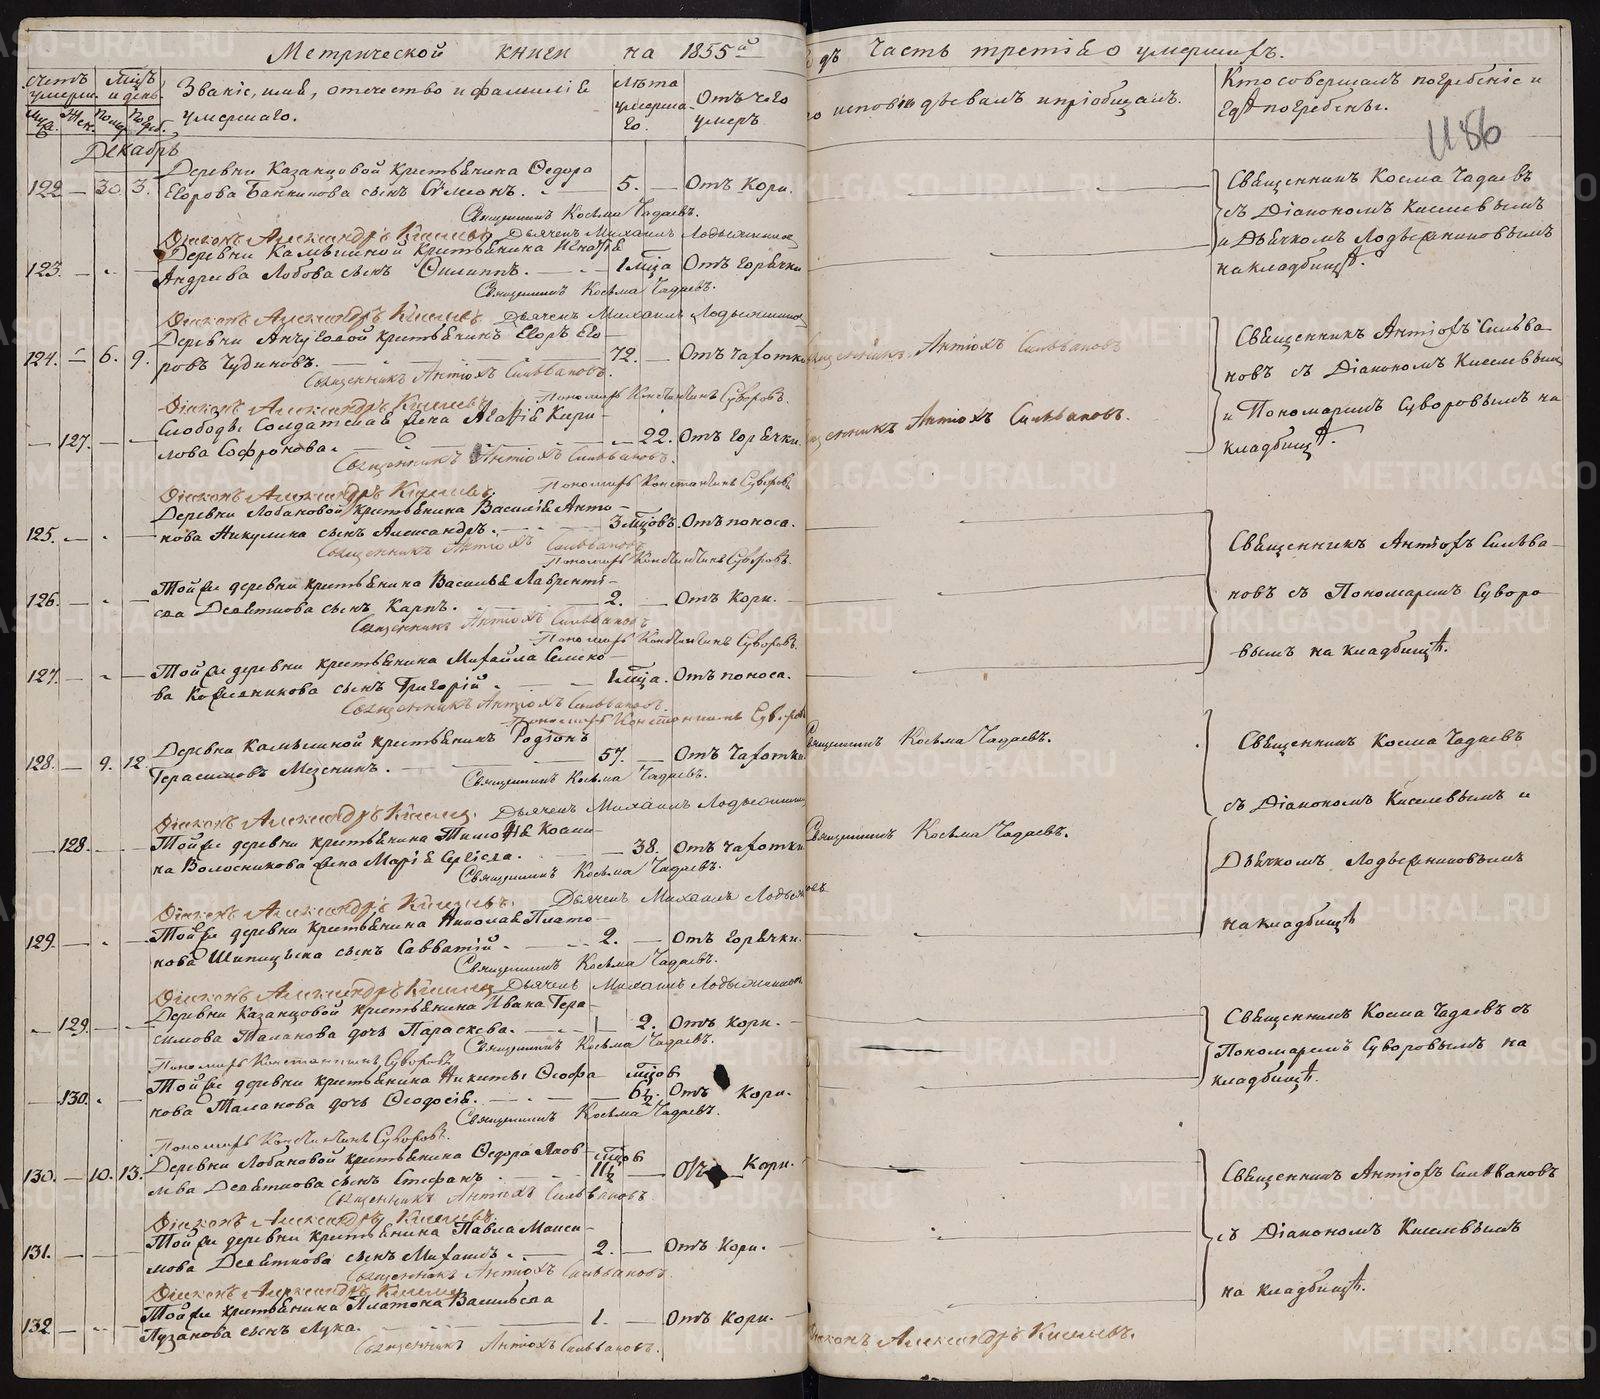 Метрической книги на 1855й
Счетъ умерш.
Мца и день.
Званіе, имя, отчество и фамилія
умершаго.
Лѣта
умерша-
го.
Отъ чего
умеръ
Муж.
Жен.
Декабрь
Деревни Казанцовой крестьянина Ѳедора
122 — 30 3. Егорова Банникова сынъ Симеонъ. 5. — Отъ Кори.
Священникъ Косьма Чадаевъ.
Діаконъ Александръ Киселевъ Дьячекъ Михаилъ
Деревни Камышной крестьянина
123. — Андреева Лобова сынъ Филиппъ. 1 мца Отъ горячки
Священникъ Косьма Чадаевъ.
Діаконъ Александръ Киселевъ Дьячекъ Михаилъ
Деревни крестьянинъ Егоръ Его-
124. — 6. 9. ровъ Чудиновъ. 72. — Отъ чахотки
Священникъ Антіохъ Сильвановъ.
Діаконъ Александръ Киселевъ Пономарь Константинъ Суворовъ.
Слободы Солдатская жена Агафія Кири-
— 127. — лова Софронова. 22. Отъ горячки.
Священникъ Антіохъ Сильвановъ.
Діаконъ Александръ Киселевъ Пономарь Константинъ Суворовъ
Деревни Лобановой крестьянина Василія Анто-
125. — нова Никулина сынъ Александръ. 3 мцовъ. Отъ поноса.
Священникъ Антіохъ Сильвановъ
Пономарь Константинъ Суворовъ.
Той же деревни крестьянина Василья Лаврентье-
126. — ва Девяткова сынъ Карпъ. 2. — Отъ Кори.
Священникъ Антіохъ Сильвановъ
Пономарь Константинъ Суворовъ.
Той же деревни крестьянина Михайла
127. — ва Кожевникова сынъ Григорій. 1 мца. Отъ поноса.
Священникъ Антіохъ Сильвановъ.
Пономарь Константинъ Суворовъ
Деревни Камышной крестьянинъ Родіонъ
128. — 9. 12. Герасимовъ Мезенинъ. 57. — Отъ чахотки
Священникъ Косьма Чадаевъ.
Діаконъ Александръ Киселевъ. Дьячекъ Михаилъ
Той же деревни крестьянина Тимофѣя
— 128. — на Волосникова жена Марія Сергіева. 38. Отъ чахотки
Священникъ Косьма Чадаевъ.
Діаконъ Александръ Киселевъ. Дьячекъ Михаилъ
Той же деревни крестьянина Николая Плато-
129. — нова Шипицына сынъ Савватій. 2. — Отъ горячки.
Священникъ Косьма Чадаевъ.
Діаконъ Александръ Киселевъ Дьячекъ Михаилъ
Деревни Казанцовой крестьянина Ивана Гера-
129. — симова Таланова дочь Параскева. 2. Отъ Кори.
Священникъ Косьма Чадаевъ.
Пономарь Константинъ Суворовъ
Той же деревни крестьянина Никиты Ѳеофа- мцовъ
— 130. нова Таланова дочь Ѳеодосія. 6½. Отъ Кори.
Священникъ Косьма Чадаевъ.
Пономарь Константинъ Суворовъ.
Деревни Лобановой крестьянина Ѳедора Яков- мцовъ
130. — 10. 13. лева Девяткова сынъ Стефанъ. 11½ — Отъ Кори.
Священникъ Антіохъ Сильвановъ.
Діаконъ Александръ Киселевъ.
Той же деревни крестьянина Павла Макси-
131. — мова Девяткова сынъ Михаилъ. 2. — Отъ Кори.
Священникъ Антіохъ Сильвановъ.
Діаконъ Александръ Киселевъ
Той же крестьянина Платона Васильева
132 — Пузанова сынъ Лука. 1. — Отъ Кори.
Священникъ Антіохъ Сильвановъ.
дъ Часть третія о умершихъ.
исповѣдывалъ и пріобщалъ.
Кто совершалъ погребеніе и
гдѣ погребены.
1186
Священникъ Косма Чадаевъ
съ Діакономъ Киселевымъ
и Дьячкомъ
на кладбищѣ.
Священникъ Антіохъ Сильвановъ
Священникъ Антіохъ Сильва-
новъ съ Діакономъ Киселевымъ
и Пономаремъ Суворовымъ на
кладбищѣ.
Священникъ Антіохъ Сильвановъ.
Священникъ Антіохъ Сильва-
новъ съ Пономаремъ Суворо-
вымъ на кладбищѣ.
Священникъ Косьма Чадаевъ.
Священникъ Косма Чадаевъ
съ Діакономъ Киселевымъ и
Священникъ Косьма Чадаевъ.
Дьячкомъ
на кладбищѣ
Священникъ Косма Чадаевъ съ
Пономаремъ Суворовымъ на
кладбищѣ.
Священникъ Антіохъ Сильвановъ
съ Діакономъ Киселевымъ
на кладбищѣ.
Діаконъ Александръ Киселевъ.
METRIKI.GASO-URAL.RU